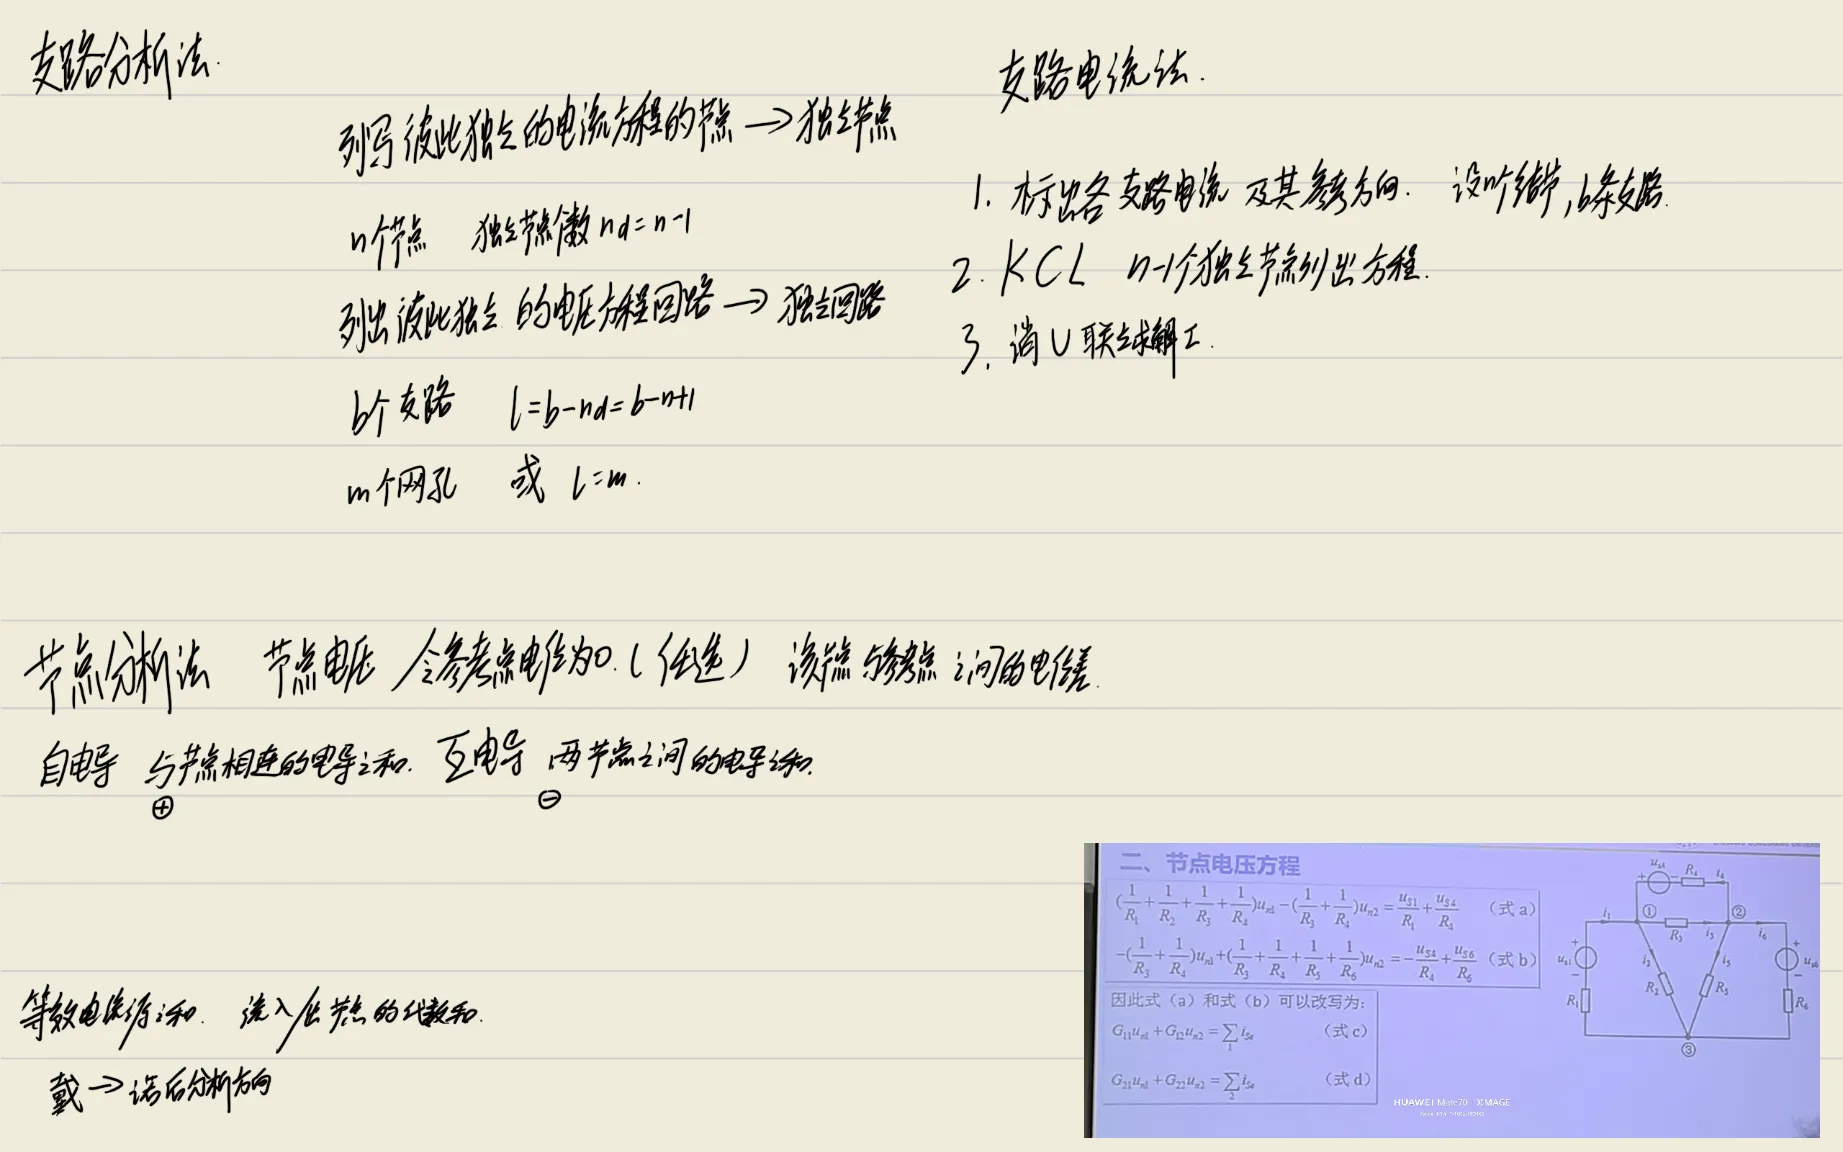 支路分析法.
列写彼此独立的电流方程的节点→独立节点
n个节点 独立节点数 nd=n-1
列出彼此独立的电压方程回路→独立回路
b个支路 l=b-nd=b-n+1
m个网孔 或 l=m.
支路电流法.
1. 标出各支路电流及其参考方向. 设n个结节,b条支路.
2. KCL n-1个独立节点列出方程.
3. 消U联立求解I.
节点分析法 节点电压 令参考点电位为0.(任选) 该节点与参考点之间的电位差.
自电导 与节点相连的电导之和. 互电导 两节点之间的电导之和.
⊕ ⊖
等效电流源之和. 流入/出节点的代数和.
戴→诺后分析方向
二、节点电压方程
(1/R₁+1/R₂+1/R₃+1/R₄)uₙ₁-(1/R₃+1/R₄)uₙ₂=u_S1/R₁+u_S4/R₄ (式a)
-(1/R₃+1/R₄)uₙ₁+(1/R₃+1/R₄+1/R₅+1/R₆)uₙ₂=-u_S4/R₄+u_S6/R₆ (式b)
因此式(a)和式(b)可以改写为:
G₁₁uₙ₁+G₁₂uₙ₂=∑₁i_Se (式c)
G₂₁uₙ₁+G₂₂uₙ₂=∑₂i_Se (式d)
+ u_s4 - R₄ i₄
i₁ ① R₃ i₃ ② i₆
+ u_s1 - i₂ i₅ + u_s6 -
R₁ R₂ R₅ R₆
③
HUAWEI Mate70 XMAGE